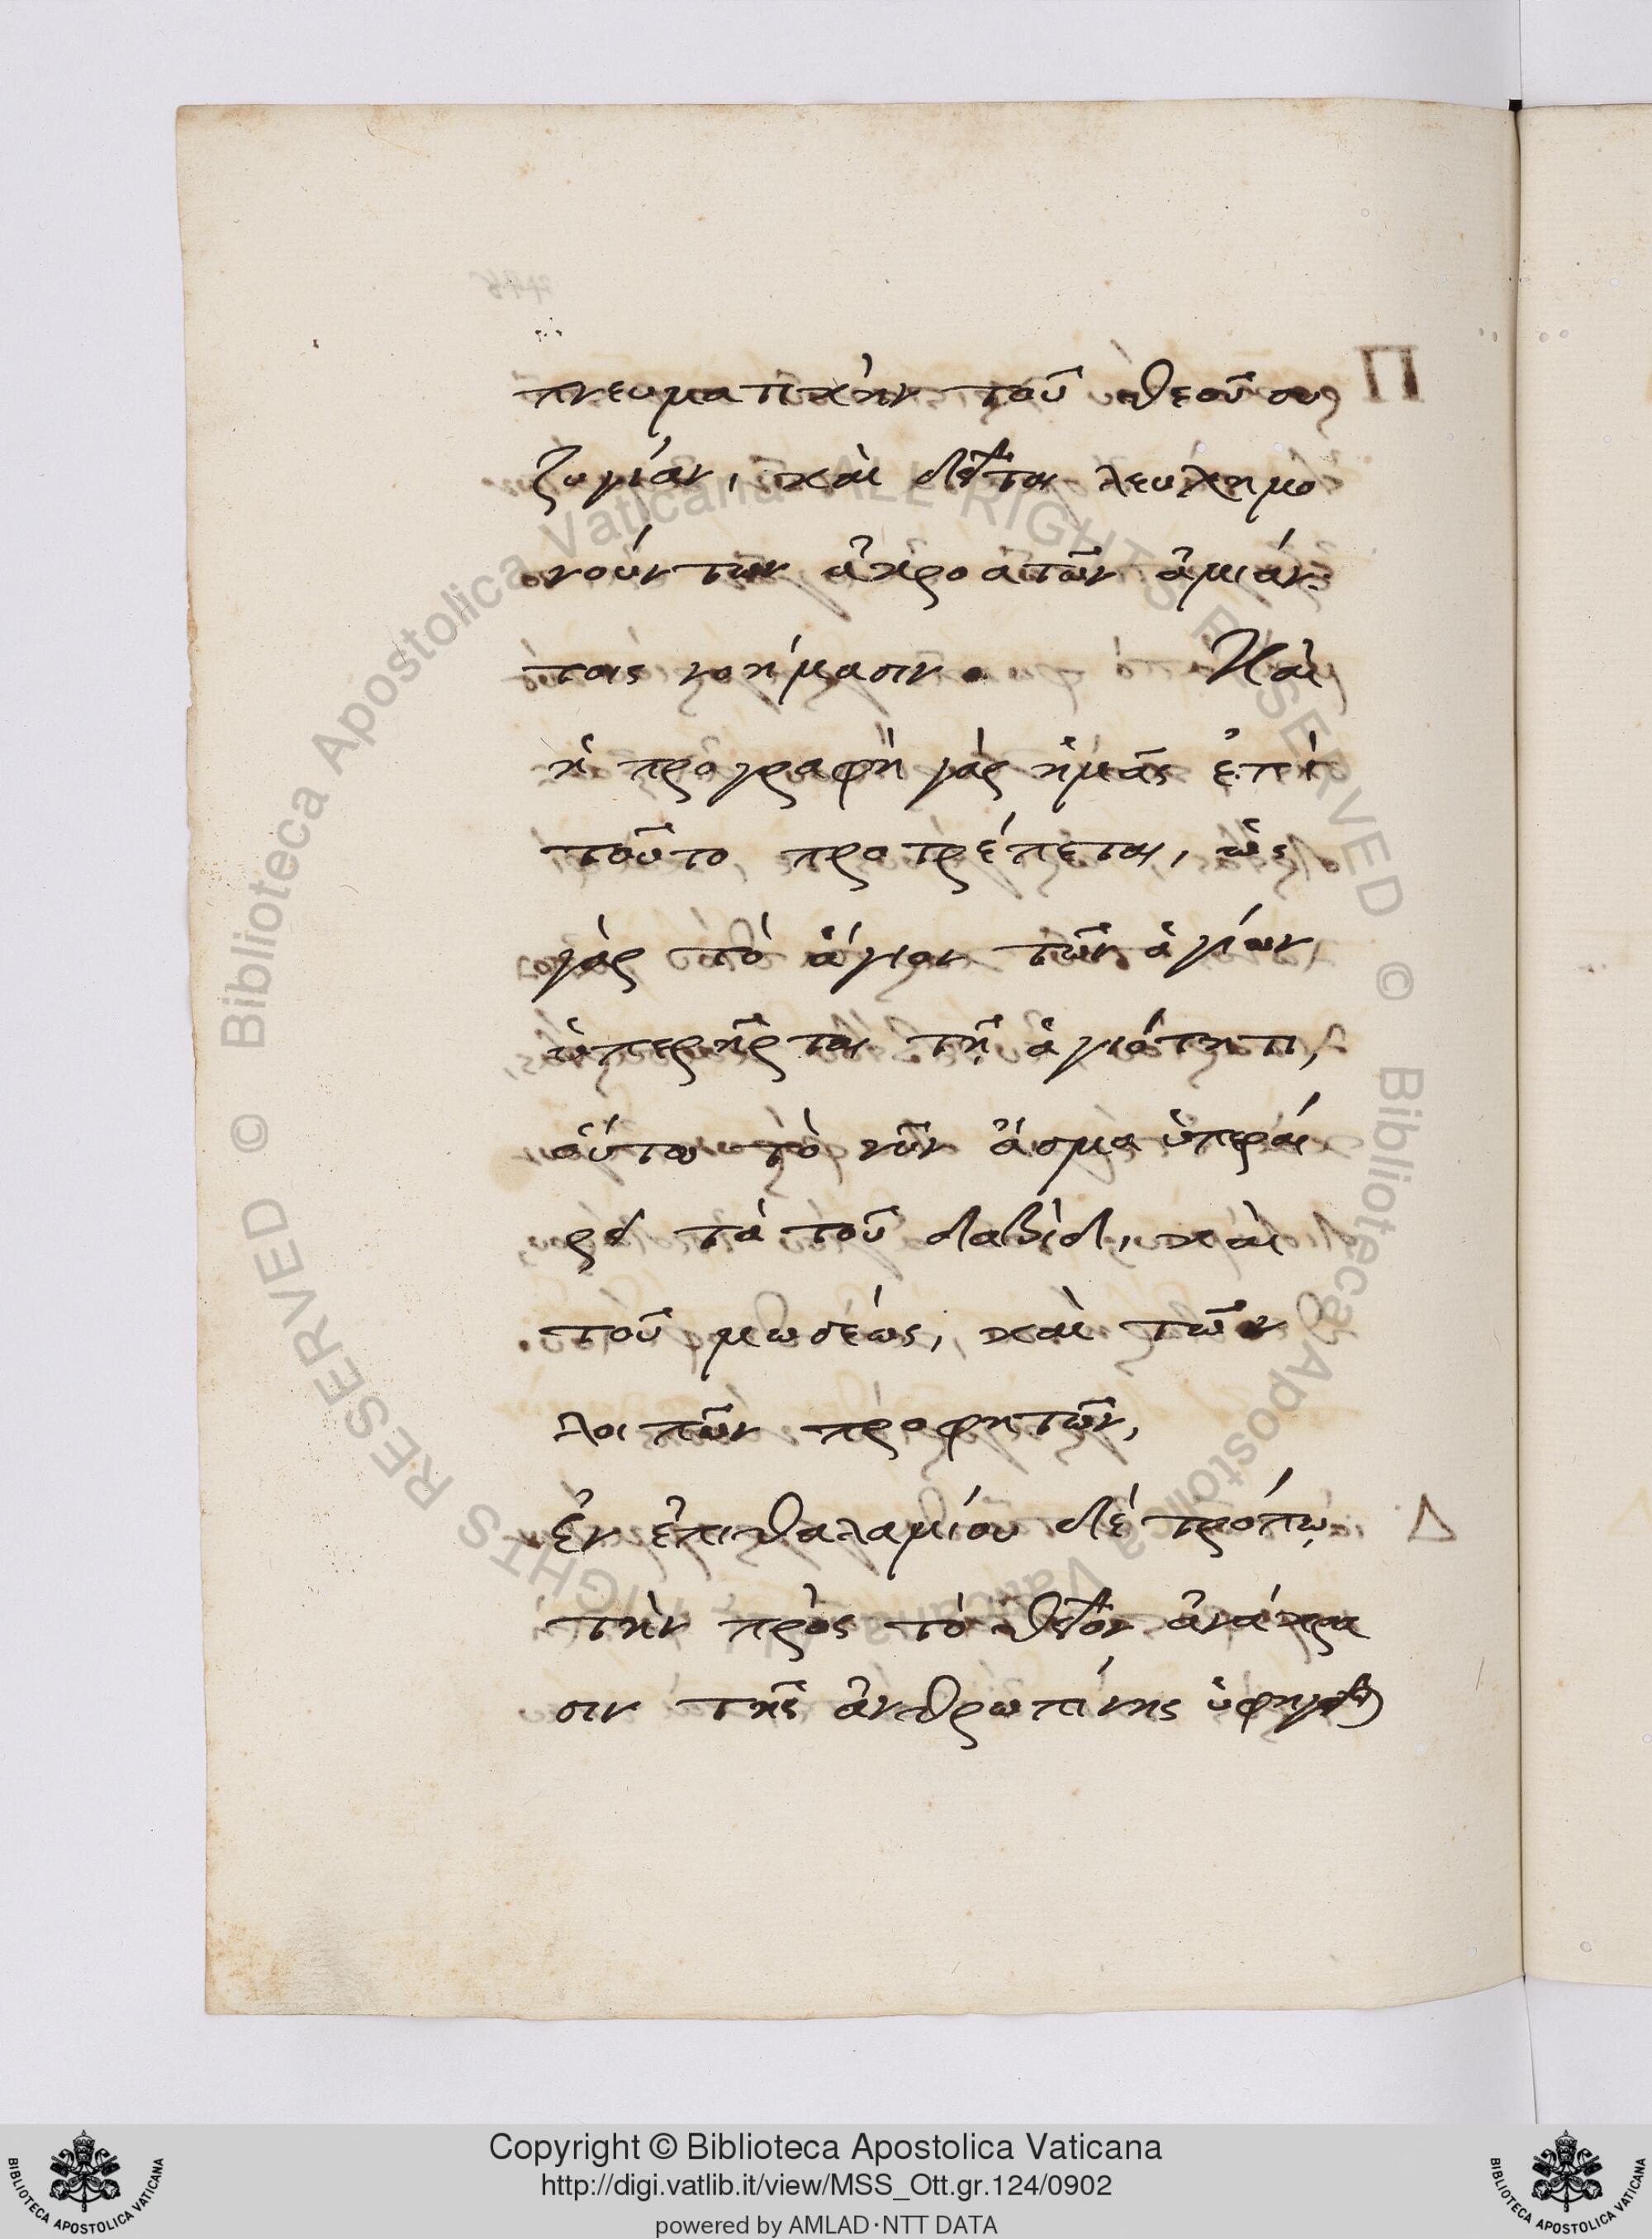 πνευματικὴν τοῦ θεοῦ συ
ζυγίαν, καὶ δεῖται λευχημο
νούντων ἀκροατῶν ἀμιάν
τοις νοήμασιν. Καὶ
ἡ προγραφὴ γὰρ ἡμᾶς ἐπὶ
τοῦτο προτρέπεται, ὡς
γὰρ τὸ ἅγιον τῶν ἁγίων
ὑπερῆρται τῇ ἁγιότητι,
οὕτω τὸ νῦν ἆσμα ὑπεραί
ρει τὰ τοῦ δαβὶδ, καὶ
τοῦ μωσέως, καὶ τῶν
λοιπῶν προφητῶν,
ἐν ἐπιθαλαμίου δὲ τρόπῳ
τὴν πρὸς τὸ θεῖον ἀνάκρα
σιν τῆς ἀνθρωπίνης ὑφηγεῖ
Π
Δ
Biblioteca Apostolica Vaticana ALL RIGHTS RESERVED ©
Biblioteca Apostolica Vaticana ALL RIGHTS RESERVED ©
Copyright © Biblioteca Apostolica Vaticana
http://digi.vatlib.it/view/MSS_Ott.gr.124/0902
powered by AMLAD·NTT DATA
BIBLIOTECA APOSTOLICA VATICANA
BIBLIOTECA APOSTOLICA VATICANA